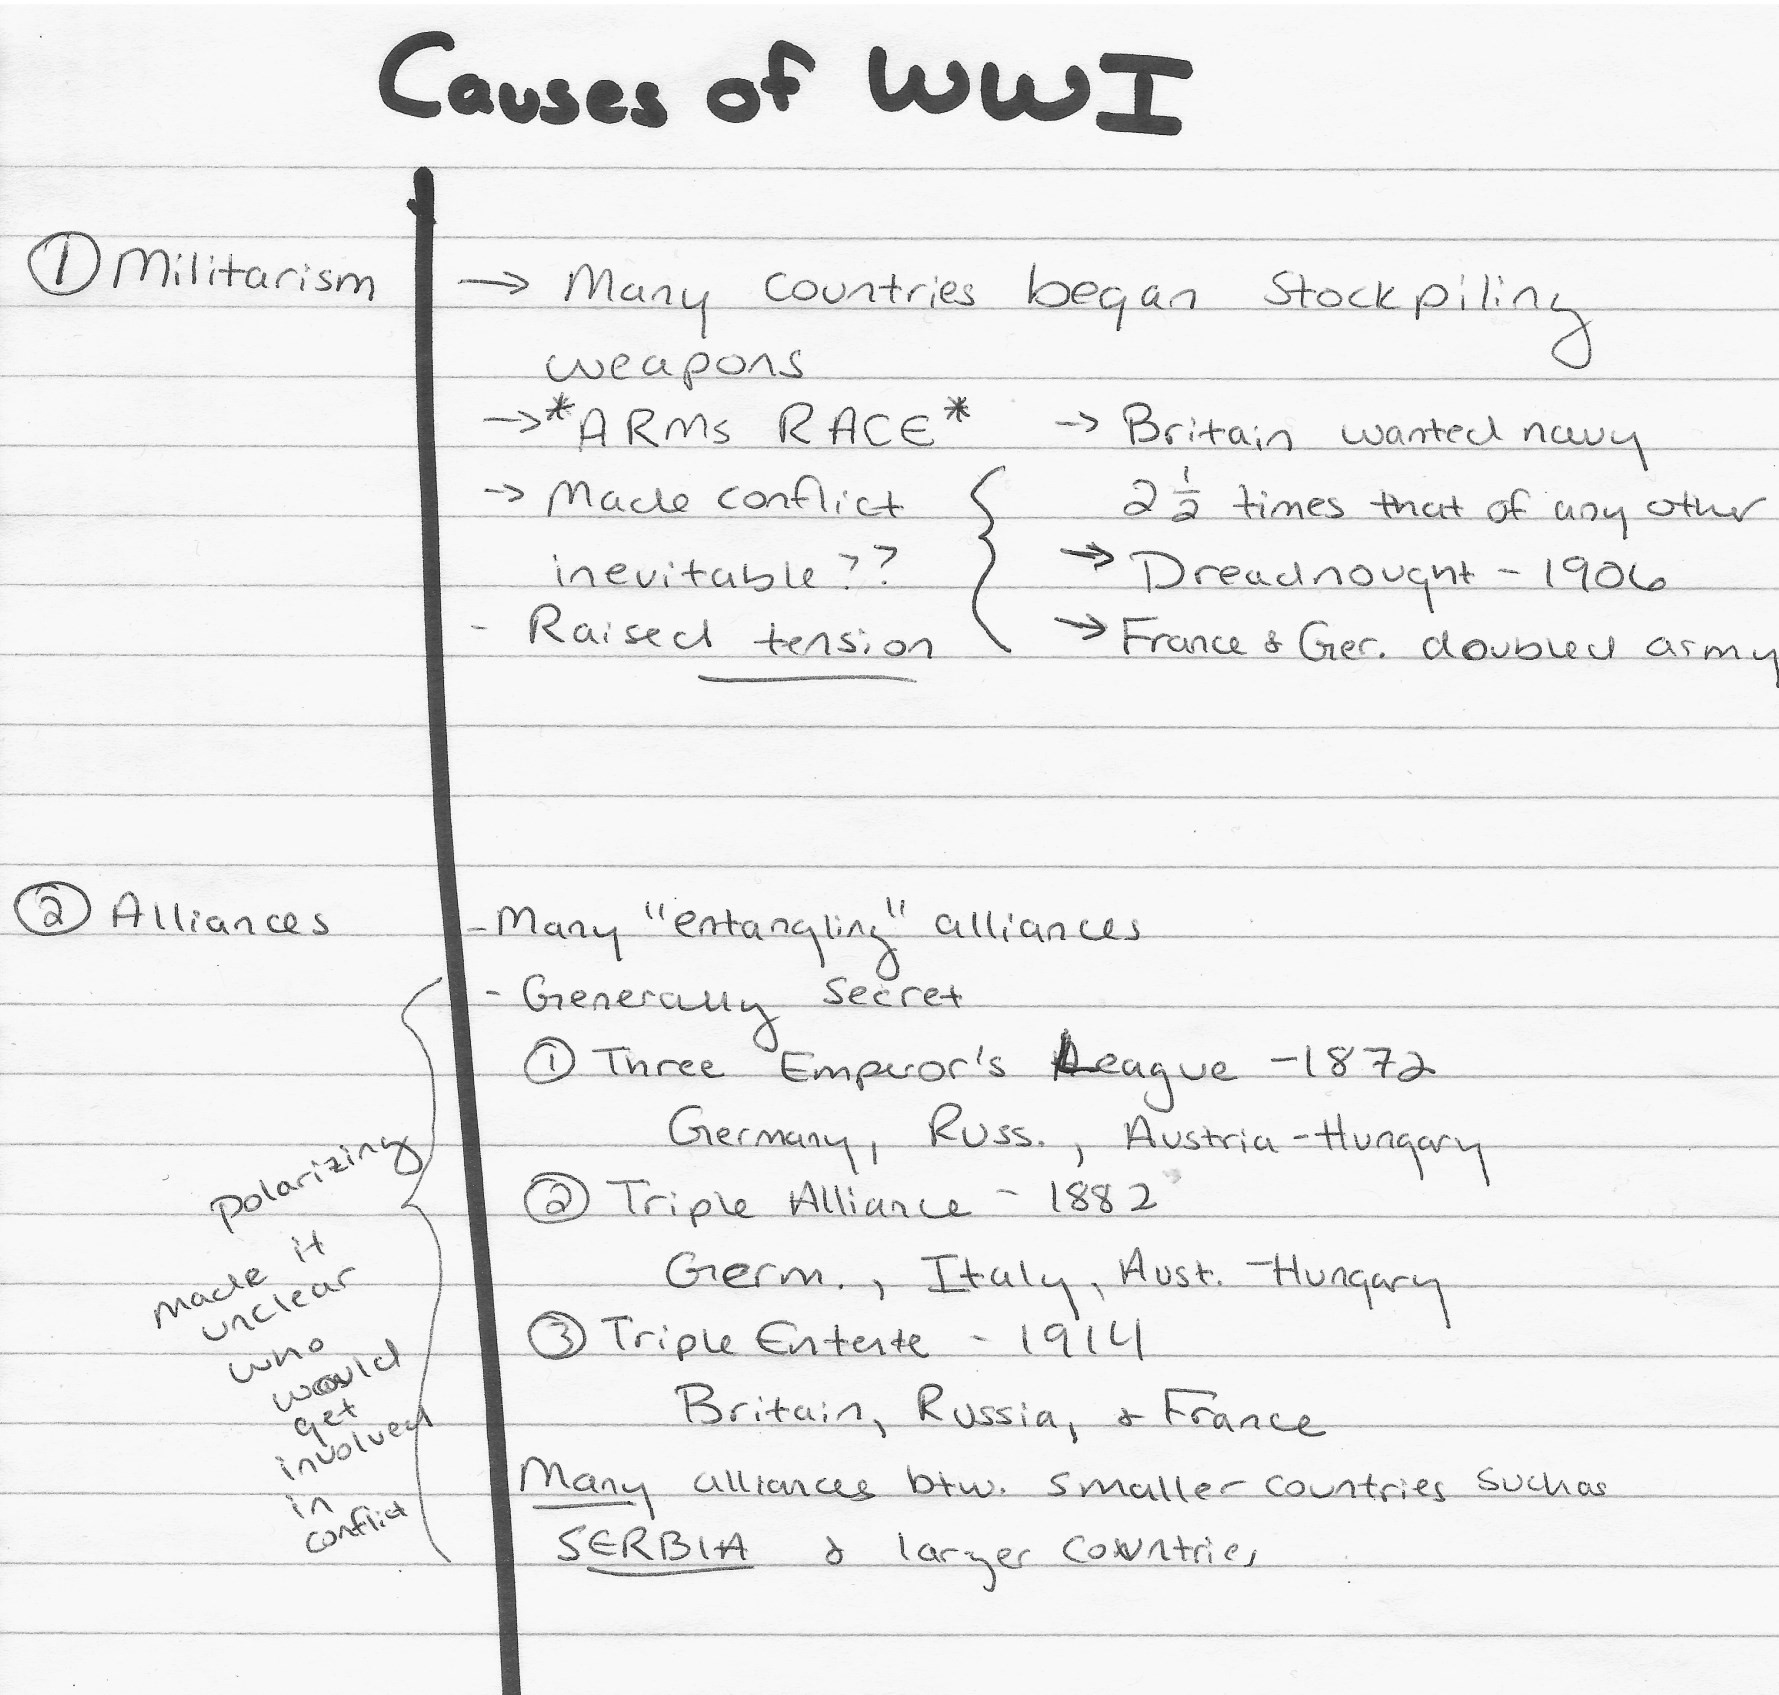 Causes of WWI
① Militarism
→ Many countries began stockpiling
weapons
→ *ARMS RACE*
→ Made conflict
inevitable??
- Raised tension
→ Britain wanted navy
2 ½ times that of any other
→ Dreadnought - 1906
→ France & Ger. doubled army
② Alliances
- Many "entangling" alliances
- Generally secret
① Three Emperor's League - 1872
Germany, Russ., Austria-Hungary
② Triple Alliance - 1882
Germ., Italy, Aust.-Hungary
③ Triple Entente - 1914
Britain, Russia, & France
Many alliances btw. smaller countries such as
SERBIA & larger countries
polarizing
made it
unclear
who
would
get
involved
in
conflict